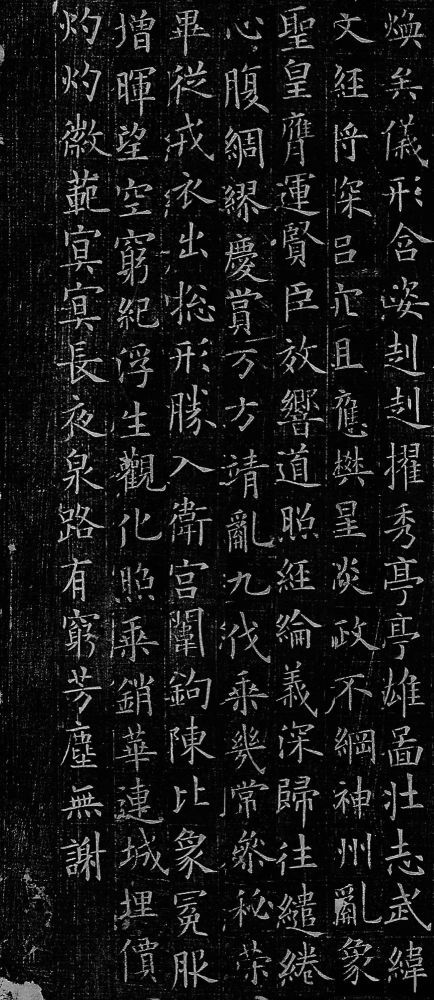 煥矣儀形含姿赳赳擢秀亭亭雄啚壯志武緯
文經時深呂穴且應樊星炎政不綱神州亂象
聖皇膺運賢臣效響道照經綸義深歸往繾綣
心腹綢繆慶賞万方靖亂九伐乘幾常參秘榮
畢從戎衣出捴形勝入衛宮闈鉤陳比象冕服
增暉望空窮紀浮生觀化照乘銷華連城埋價
灼灼徽範冥冥長夜泉路有窮芳塵無謝